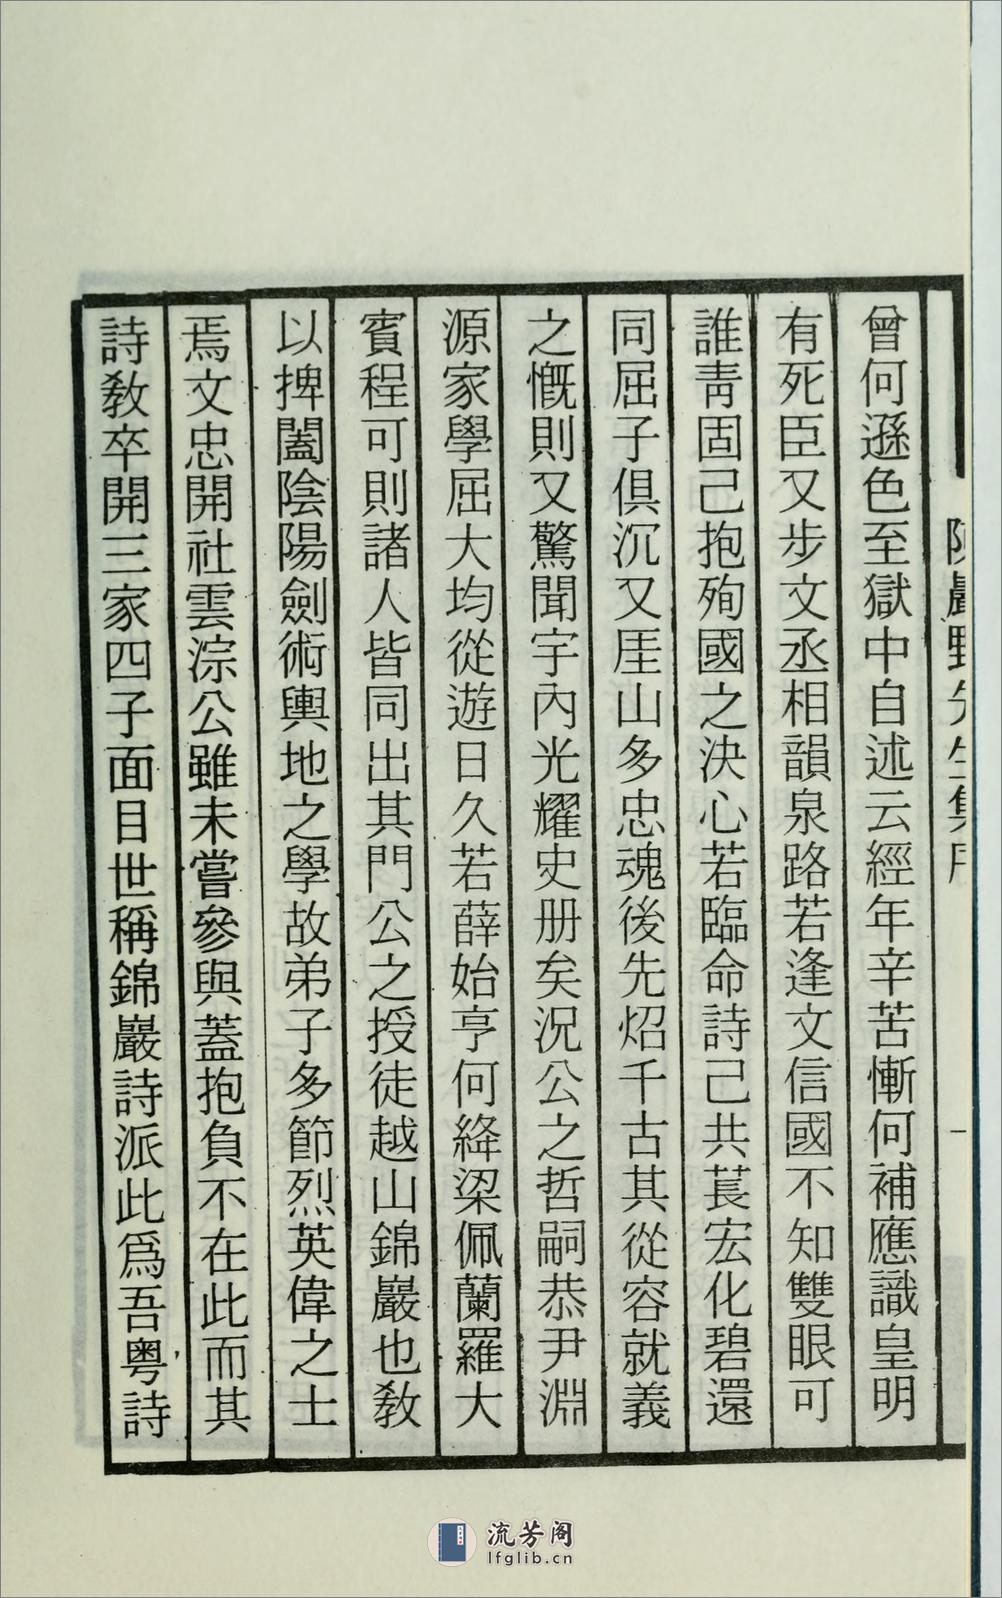 陳巖野先生集序
一
曾何遜色至獄中自述云經年辛苦慚何補應識皇明
有死臣又步文丞相韻泉路若逢文信國不知雙眼可
誰靑固己抱殉國之決心若臨命詩己共萇宏化碧還
同屈子俱沉又厓山多忠魂後先炤千古其從容就義
之慨則又驚聞宇內光耀史册矣況公之哲嗣恭尹淵
源家學屈大均從遊日久若薛始亨何絳梁佩蘭羅大
賓程可則諸人皆同出其門公之授徒越山錦巖也教
以捭闔陰陽劍術輿地之學故弟子多節烈英偉之士
焉文忠開社雲淙公雖未嘗參與蓋抱負不在此而其
詩教卒開三家四子面目世稱錦巖詩派此爲吾粵詩
流芳阁
lfglib.cn